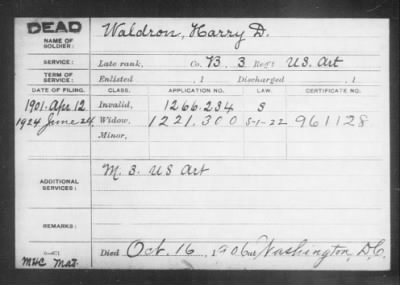 DEAD
NAME OF SOLDIER: Waldron, Harry D.
SERVICE: Late rank, Co. B. 3 Reg't U.S. Art
TERM OF SERVICE: Enlisted , 1 Discharged , 1
DATE OF FILING. CLASS. APPLICATION NO. LAW. CERTIFICATE NO.
1901. Apr. 12 Invalid, 1266.234 S
1924 June 24. Widow, 1221.300 S-1-22 961128
Minor,
ADDITIONAL SERVICES: M. 3. US Art
REMARKS:
Died Oct. 16, 1906 at Washington, D.C.